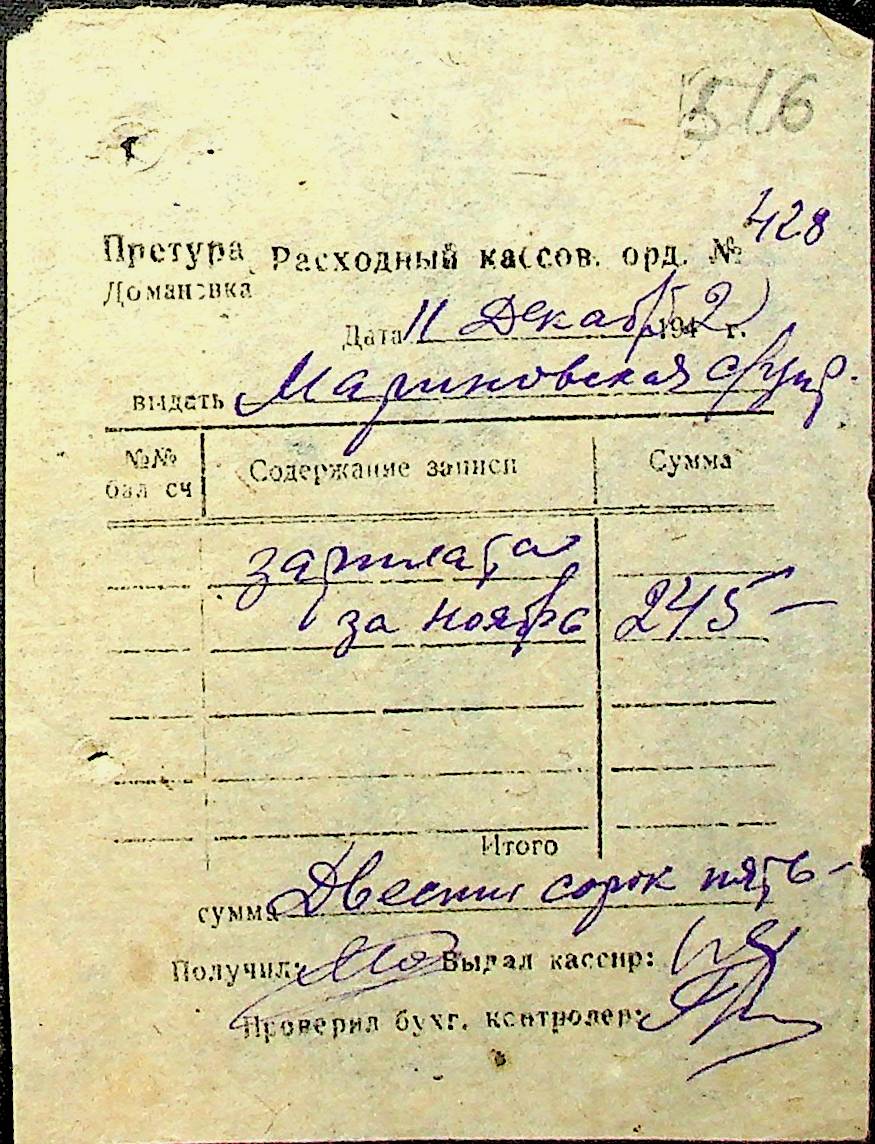 516
428
Претура Расходный кассов. орд. №
Домановка
Дата 11 Декабр 1942 г.
выдать Мариновская
№№ бал сч Содержание записи Сумма
зарплата
за ноябрь 245 —
Итого
сумма Двести сорок пять —
Получил: Выдал кассир:
Проверил бухг. контролер: